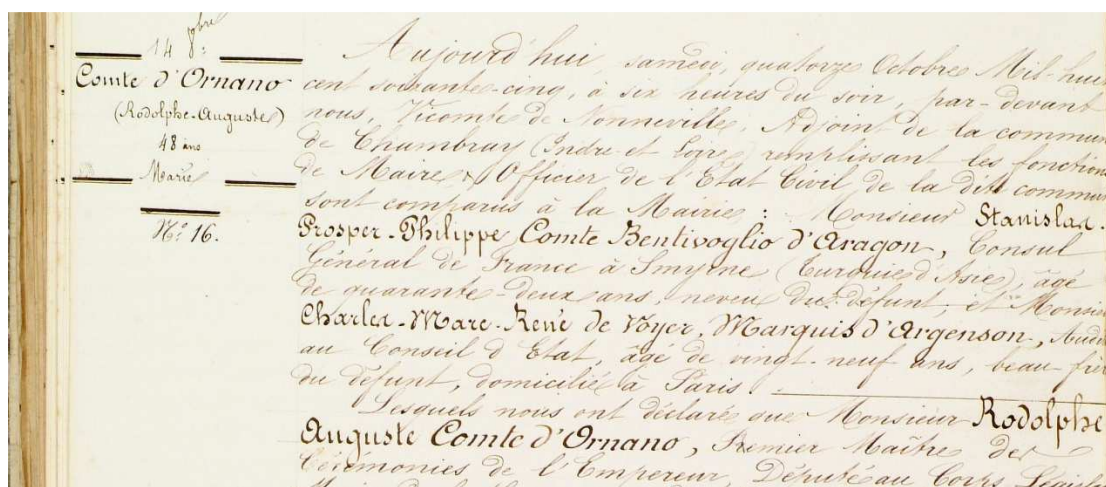 14 8bre
Comte d'Ornano
(Rodolphe-Auguste)
48 ans
Marié
N° 16.
Aujourd'hui, samedi, quatorze Octobre Mil-huit
cent soixante-cinq, à six heures du soir, par-devant
nous, Vicomte de Nonneville, Adjoint de la commun
de Chambray (Indre-et-Loire) remplissant les fonctions
de Maire & Officier de l'Etat Civil de la dite commun
sont comparus à la Mairie : Monsieur Stanislas-
Prosper-Philippe Comte Bentivoglio d'Aragon, Consul
Général de France à Smyrne (Turquie d'Asie), âgé
de quarante-deux ans, neveu du défunt, et Monsieu
Charles-Marc-René de Voyer, Marquis d'Argenson, Audi
au Conseil d'Etat, âgé de vingt-neuf ans, beau-frèr
du défunt, domicilié à Paris.
Lesquels nous ont déclaré que Monsieur Rodolphe
Auguste Comte d'Ornano, Premier Maître des
Cérémonies de l'Empereur, Député au Corps Législa